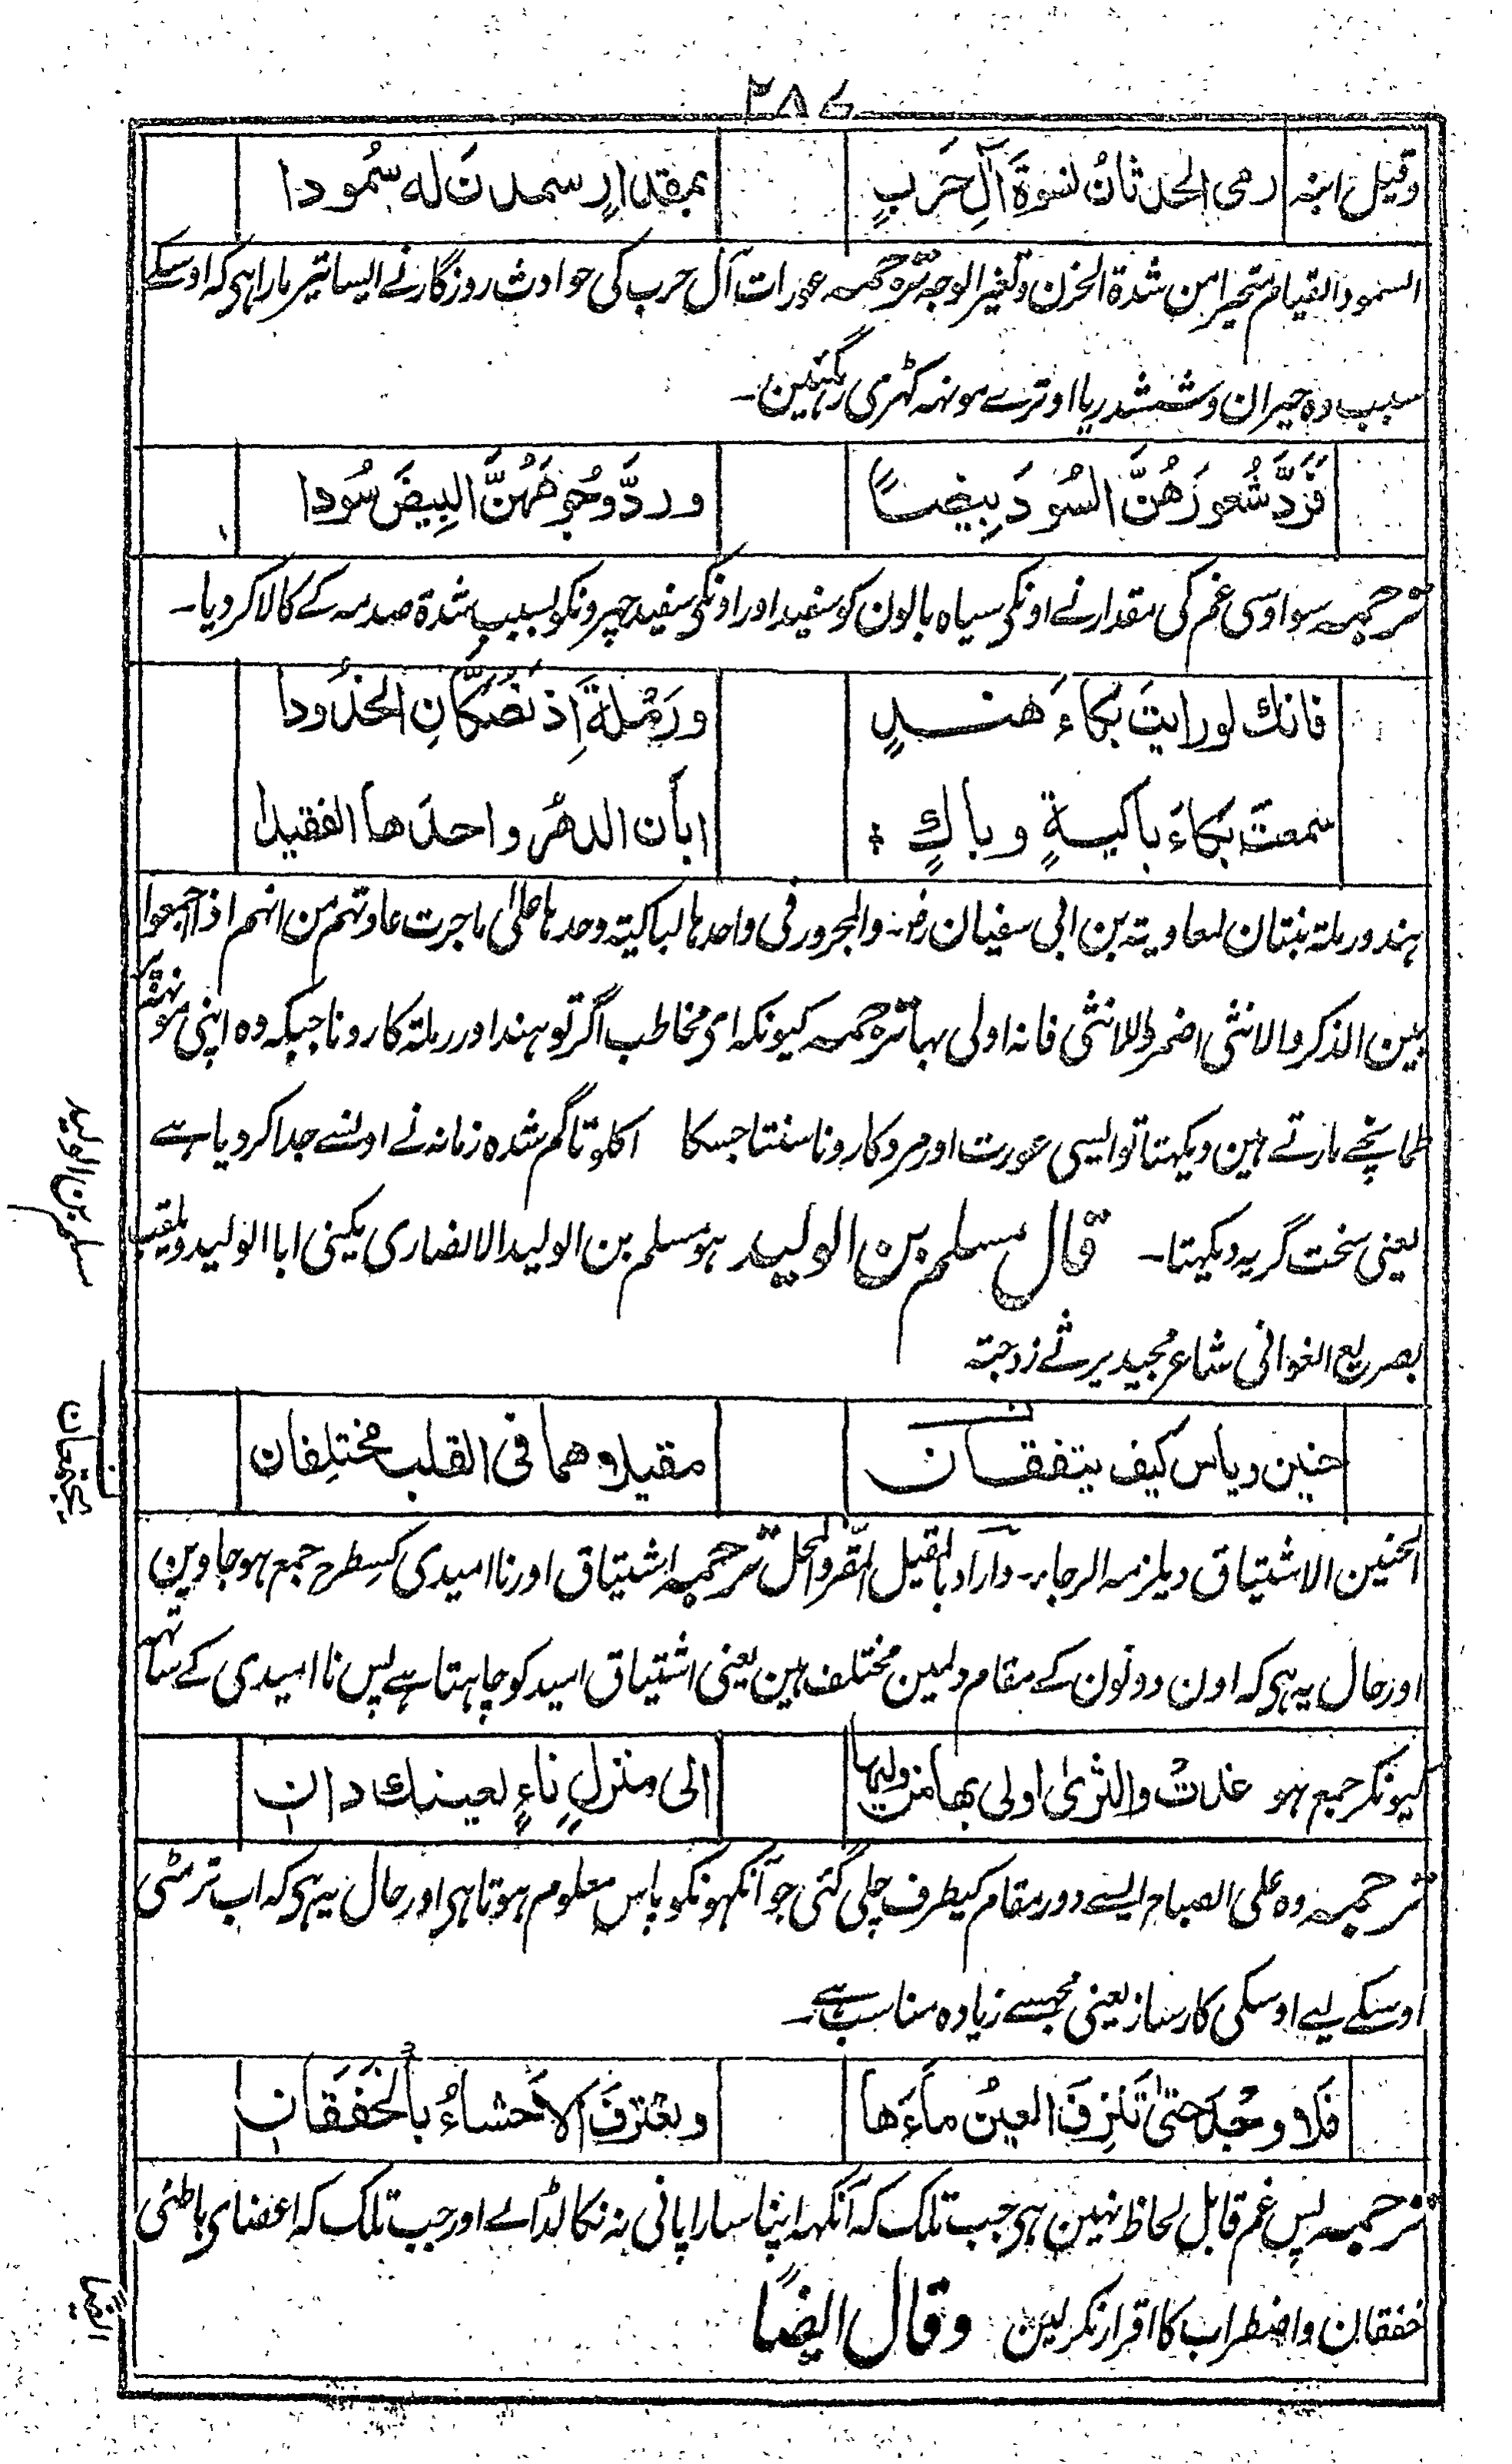 ۲۸۷
وقیل ابنه رمی الحدثانُ نسوةَ آلِ حَربٍ بمقدارٍ سمدنَ له سُمودا
السمود القیام متحیرا من شدة الحزن وتغیر الوجہ ترجمہ عورات آل حرب کی حوادث روزگار نے ایسا تیر مارا ہی کہ اوسکے
سبب وہ حیران وششدر یا اوترے مونہہ کہڑی رہگئین۔
فَرَدَّ شُعورَهُنَّ السُودَ بِیضاً وردَّ وُجوهَهُنَّ البِیضَ سُودا
ترجمہ سو اوسی غم کی مقدار نے اونکی سیاہ بالون کو سفید اور اونکی سفید چہرونکو بسبب شدة صدمہ کے کالا کر دیا۔
فانك لو رایتَ بکاءَ هندٍ ورَمْلةَ اِذ تصُکّانِ الخدُودا
سمعتَ بکاءَ باکیةٍ وباكٍ ابان الدهرُ واحدَها الفقیدا
ہند ورملۃ بنتان لمعاویۃ بن ابی سفیان رضہ والمجرور فی واحدہا لباکیتہ وحدہا علیٰ ما جرت عادتہم من انہم اذا جمعوا
بین الذکر والانثی اضمروا للانثی فانہ اولی بہا ترجمہ کیونکہ ای مخاطب اگر تو ہند اور رملۃ کا رونا جبکہ وہ اپنی مونہہ پر
طمانچے مارتے ہین دیکہتا تو ایسی عورت اور مرد کا رونا سنتا جسکا اکلوتا گم شدہ زمانہ نے اونسے جدا کر دیا ہے
یعنی سخت گریہ دیکہتا۔ قال مسلم بن الولید ہو مسلم بن الولید الانصاری یکنی ابا الولید ویلقب
بصریع الغوانی شاعر مجید یرثے زوجتہ
حنین ویاس کیف یتفقان مقیلاهما فی القلب مختلِفان
الحنین الاشتیاق ویلزمہ الرجاء۔ واراد بالمقیل المقر والمحل ترجمہ اشتیاق اور نا امیدی کسطرح جمع ہو جاوین
اور حال یہ ہی کہ اون دونون کے مقام دلمین مختلف ہین یعنی اشتیاق امید کو چاہتا ہے پس نا امیدی کے ساتہہ
کیونکر جمع ہو غدت والثریٰ اولی بها من ولیها الی منزلٍ ناءٍ لعینك دان
ترجمہ وہ علی الصباح ایسے دور مقام کیطرف چلی گئی جو آنکہونکو پاس معلوم ہوتا ہی اور حال یہ ہی کہ اب تر مٹی
اوسکے لیے اوسکی کارساز یعنی مجہسے زیادہ مناسب ہے۔
فَلا وجدَ حتیٰ تَنزِفَ العینُ ماءَها وتعترفَ الاَحشاءُ بالخَفَقان
ترجمہ پس غم قابل لحاظ نہین ہی جب تلک کہ آنکہہ اپنا سارا پانی نہ نکالڈالے اور جب تلک کہ اعضای باطنی
خفقان واضطراب کا اقرار نکرلین وقال ایضًا
مسلم بن الولید
ایضًا